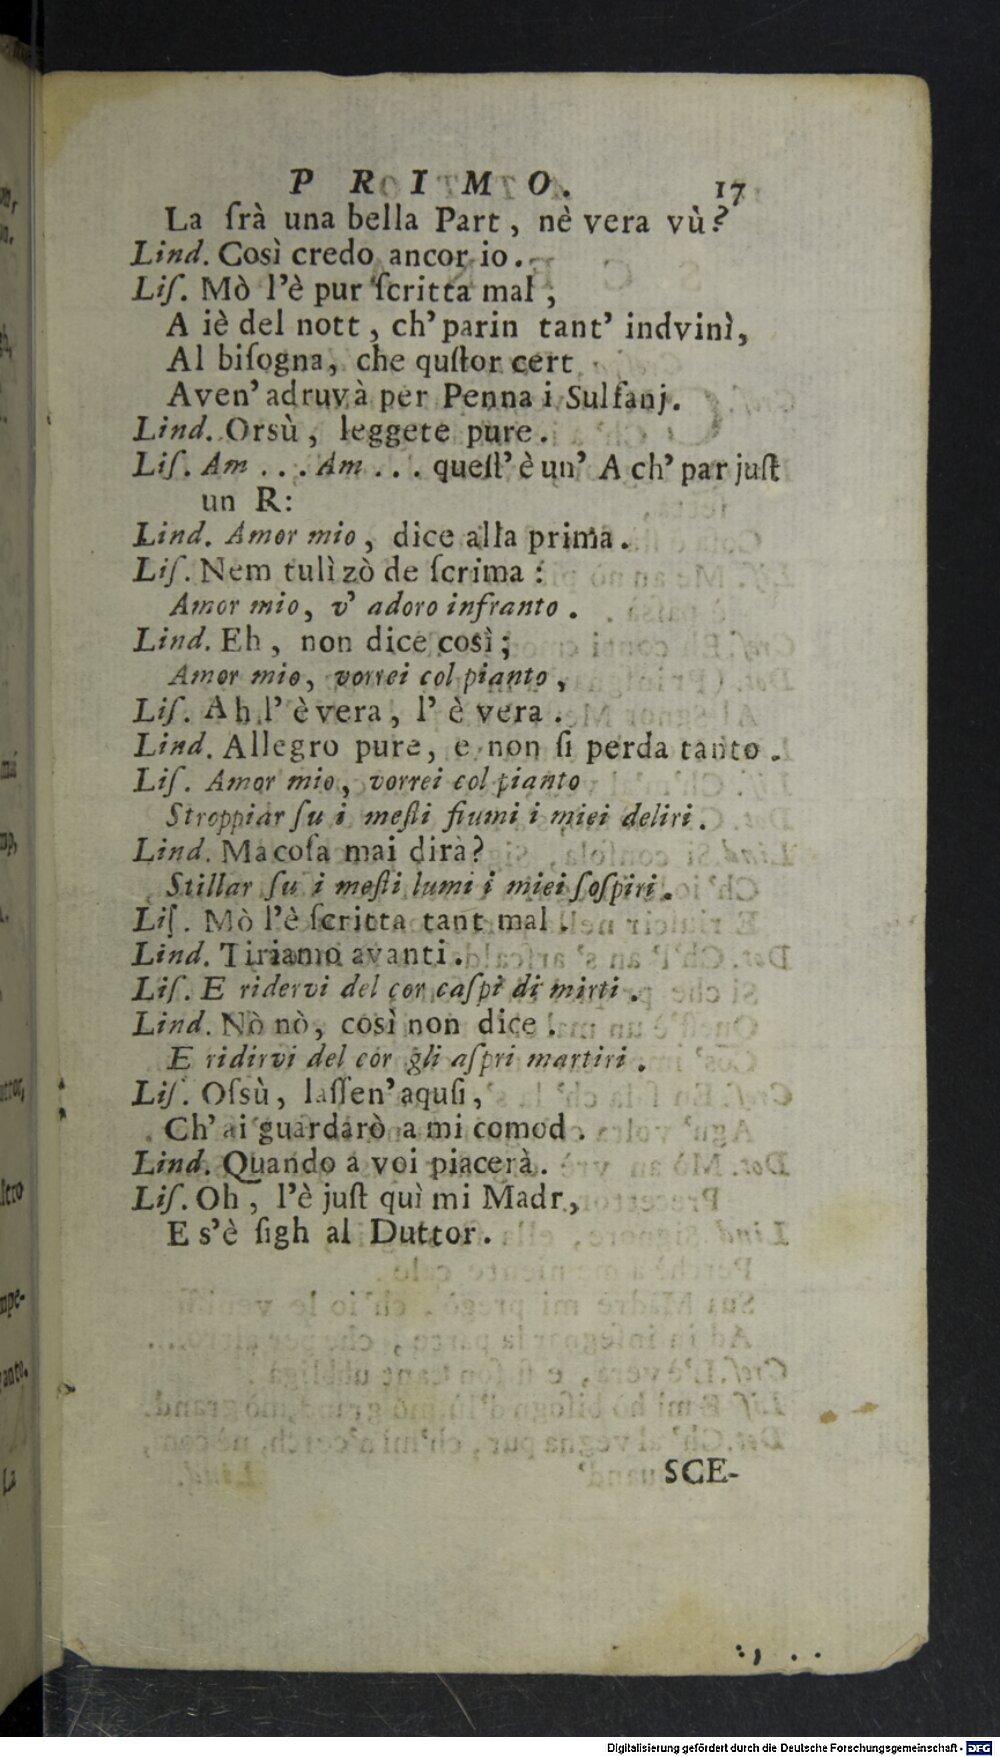 PRIMO. 17
La ſrà una bella Part, nè vera vù?
Lind. Così credo ancor io.
Liſ. Mò l'è pur ſcritta mal,
A iè del nott, ch' parin tant' indvinì,
Al biſogna, che quſtor cert
Aven' adruvà per Penna i Sulfanj.
Lind. Orsù, leggete pure.
Liſ. Am ... Am ... queſt' è un' A ch' par juſt
un R:
Lind. Amor mio, dice alla prima.
Liſ. Nem tulì zò de ſcrima:
Amor mio, v' adoro infranto.
Lind. Eh, non dice così;
Amor mio, vorrei col pianto,
Liſ. Ah l' è vera, l' è vera.
Lind. Allegro pure, e non ſi perda tanto.
Liſ. Amor mio, vorrei col pianto
Stroppiar ſu i meſti fiumi i miei deliri.
Lind. Ma coſa mai dirà?
Stillar ſu i meſti lumi i miei ſoſpiri.
Liſ. Mò l'è ſcritta tant mal.
Lind. Tiriamo avanti.
Liſ. E ridervi del cor caſpi di mirti.
Lind. Nò nò, così non dice.
E ridirvi del cor gli aſpri martiri.
Liſ. Oſsù, laſſen' aquſi,
Ch' ai guardarò a mi comod.
Lind. Quando a voi piacerà.
Liſ. Oh, l'è juſt quì mi Madr,
E s'è ſigh al Duttor.
SCE-
Digitalisierung gefördert durch die Deutsche Forschungsgemeinschaft - DFG